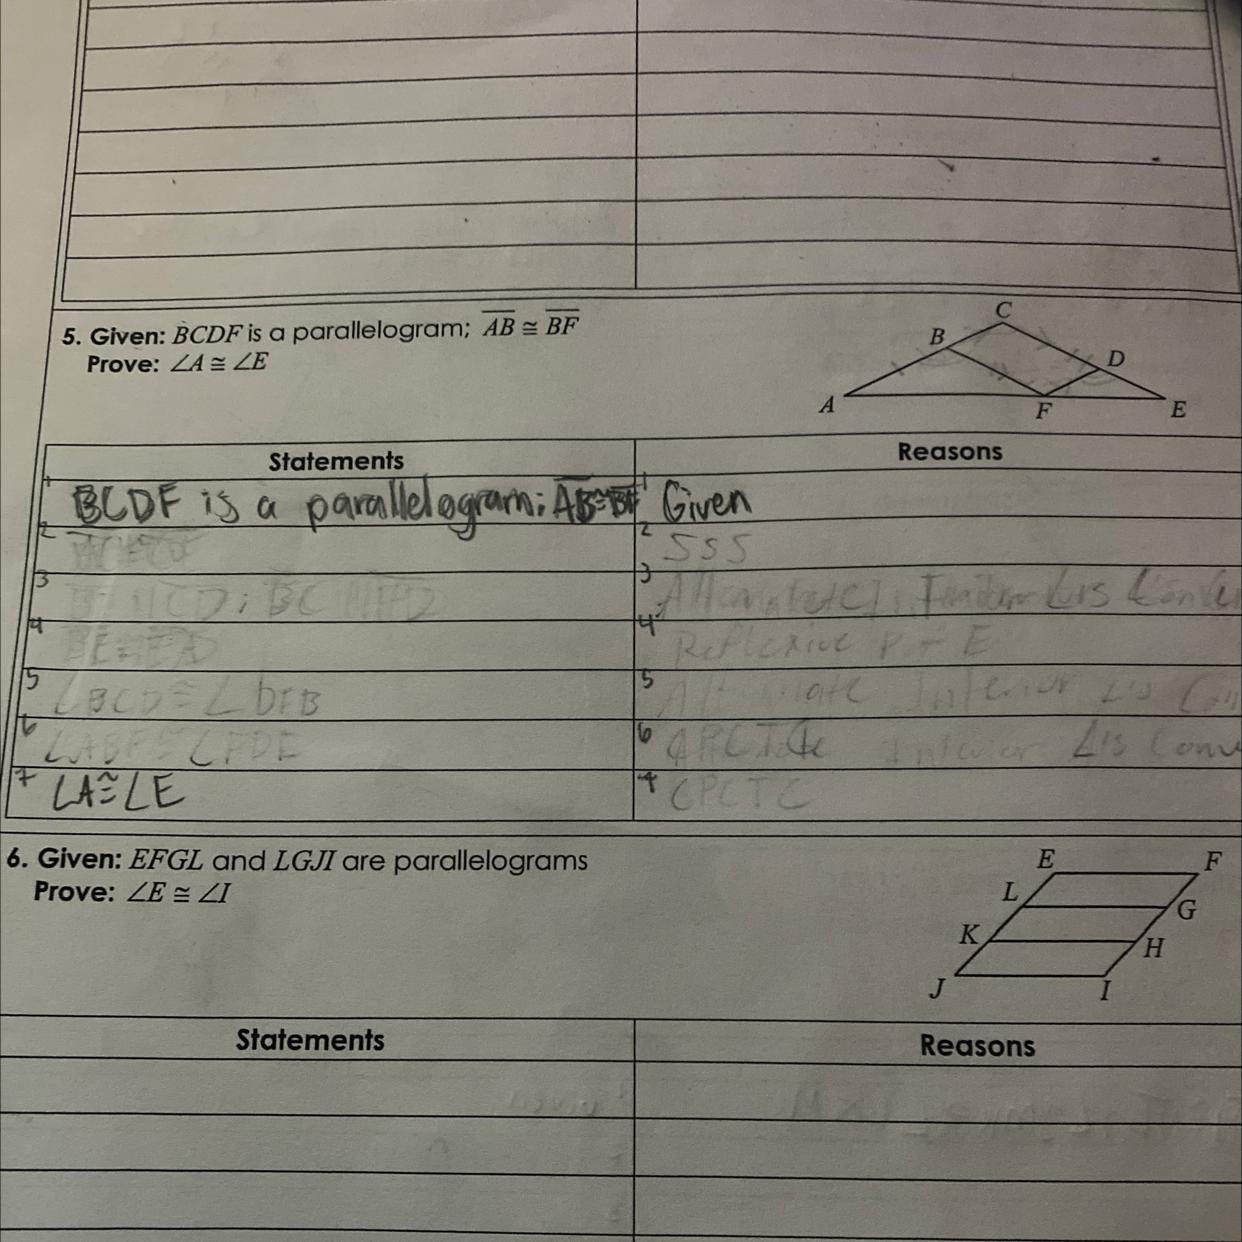 5. Given: BCDF is a parallelogram; AB ≅ BF
Prove: ∠A ≅ ∠E
C
B
D
A
F
E
Statements
Reasons
1 BCDF is a parallelogram; AB≅BF
1 Given
2
2 SSS
3 BC FD
3 Interior ∠'s
4
4 Reflexive P-E
5 ∠BCD ≅ ∠DFB
5 Interior ∠'s
6 ∠ABF ≅ ∠FDE
6 Interior ∠'s Conv
7 ∠A≅∠E
7 CPCTC
6. Given: EFGL and LGJI are parallelograms
Prove: ∠E ≅ ∠I
E
F
L
G
K
H
J
I
Statements
Reasons